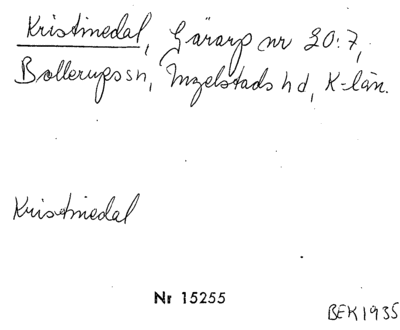 Kristinedal, Gärarp nr 20:7,
Bollerups sn, Ingelstads hd, K-län.
Kristinedal
Nr 15255
BEK1935